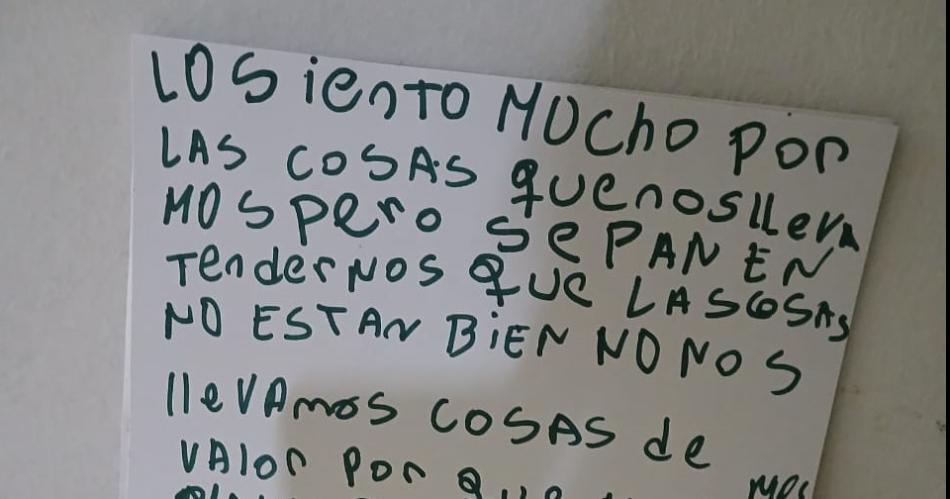 LO SiENTO MUCho POR
LAS COSAS QUENOSlleVA
MOS PERO SEPAN EN
TENderNOS QUE LASCOSAS
NO ESTAN BiEN NO NOS
lleVAmos COSAS de
VAloR PoR QUE